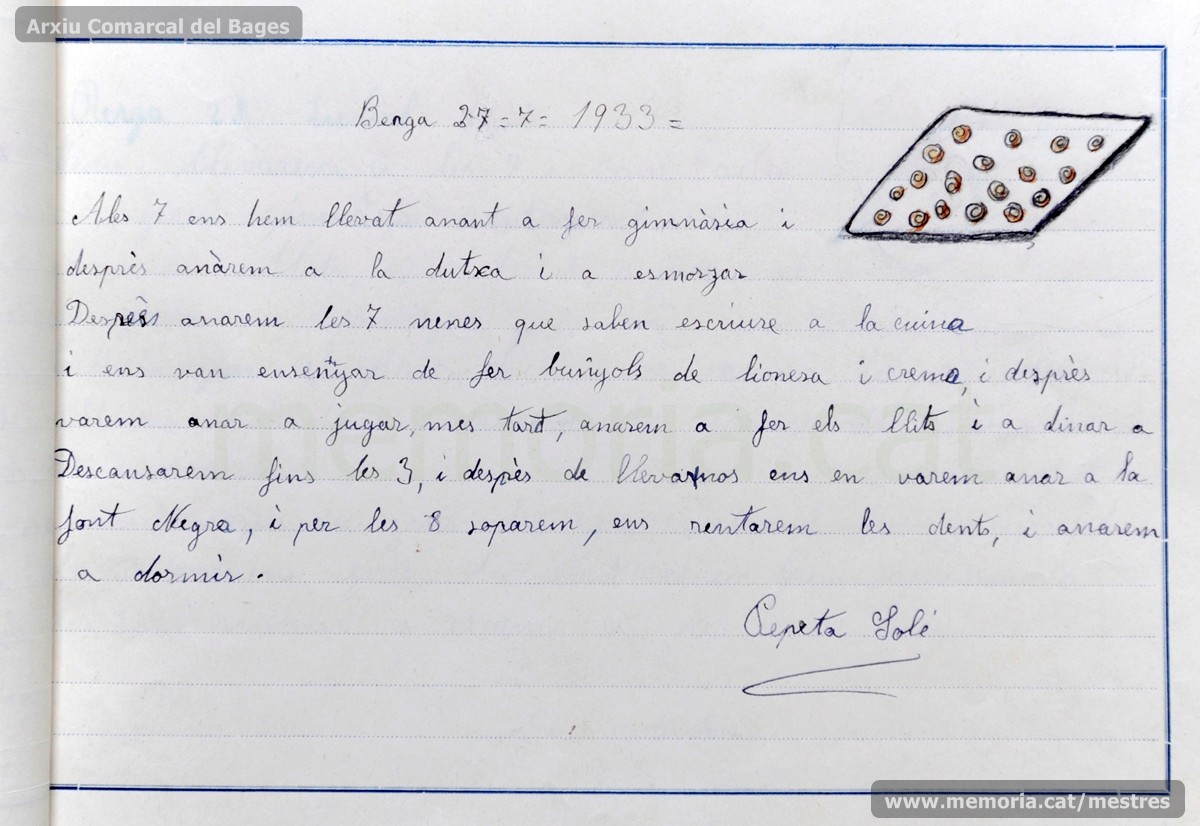 Arxiu Comarcal del Bages
Berga 27=7= 1933=
A les 7 ens hem llevat anant a fer gimnàsia i
desprès anàrem a la dutxa i a esmorzar
Desprès anarem les 7 nenes que saben escriure a la cuina
i ens van ensenyar de fer bunyols de lionesa i crema, i desprès
varem anar a jugar, mes tard, anarem a fer els llits i a dinar a
Descansarem fins les 3, i despès de llevarnos ens en varem anar a la
font Negra, i per les 8 soparem, ens rentarem les dents, i anarem
a dormir.
Pepeta Solé
memoria.cat
www.memoria.cat/mestres